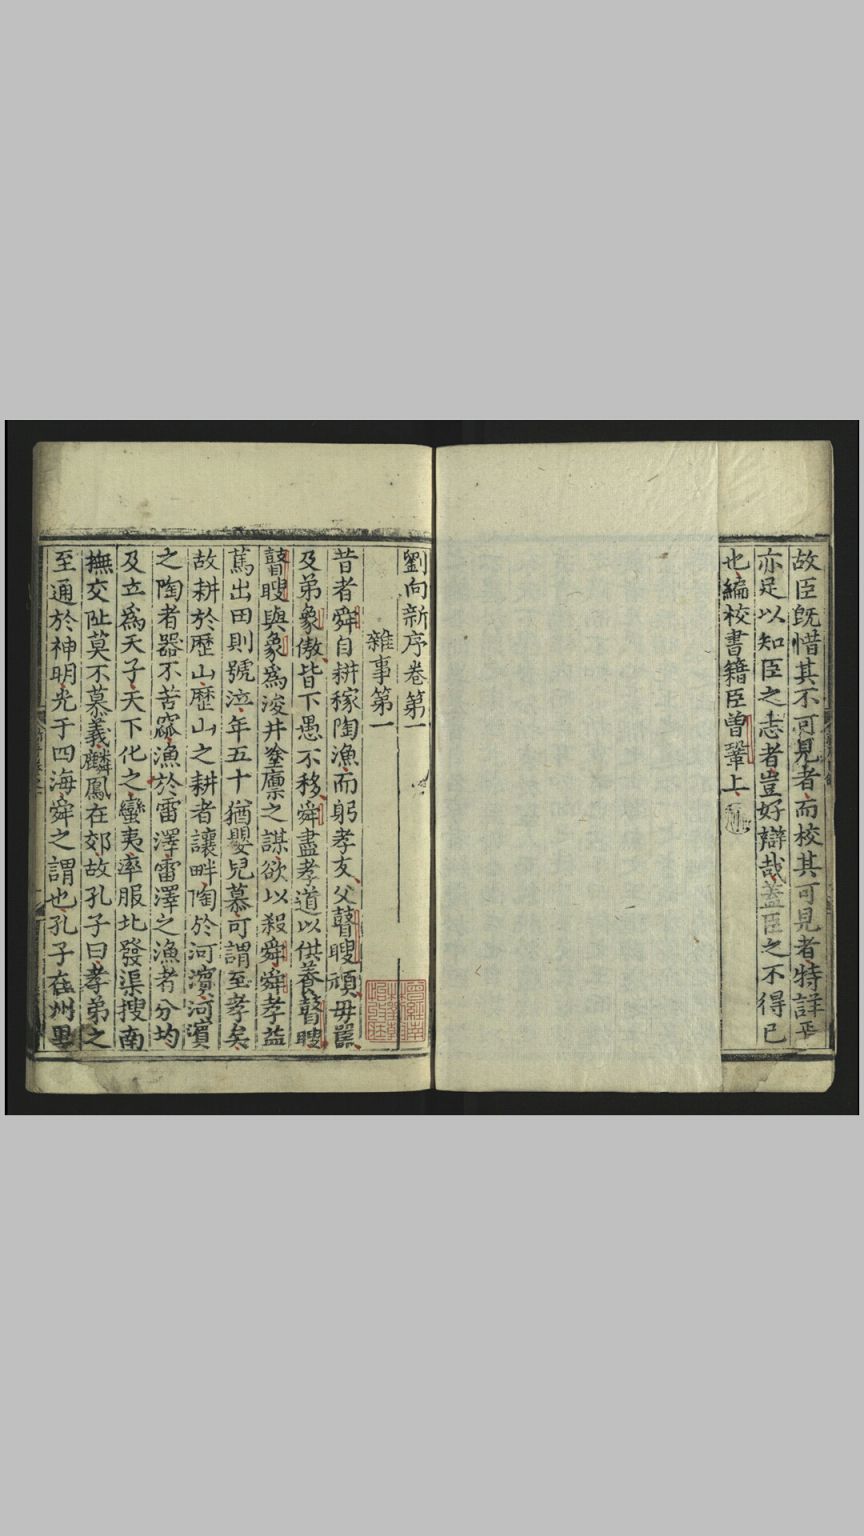 故臣旣惜其不可見者而校其可見者特詳焉
亦足以知臣之志者豈好辯哉蓋臣之不得已
也編校書籍臣曽鞏上
劉向新序卷第一
雜事第一
昔者舜自耕稼陶漁而躬孝友父瞽瞍頑毋嚚
及弟象傲皆下愚不移舜盡孝道以供養瞽瞍
瞽瞍與象爲浚井塗廪之謀欲以殺舜舜孝益
篤出田則號泣年五十猶嬰兒慕可謂至孝矣
故耕於歷山歷山之耕者讓畔陶於河濱河濱
之陶者器不苦窳漁於雷澤雷澤之漁者分均
及立爲天子天下化之蠻夷率服北發渠搜南
撫交阯莫不慕義麟鳳在郊故孔子曰孝弟之
至通於神明光于四海舜之謂也孔子在州里